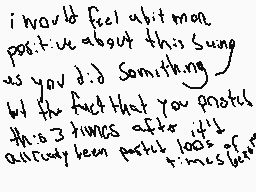 i would feel a bit mor
positive about this swing
us you did something
but the fact that you posted
this 3 times after it'd
allready been posted 100s of
times before